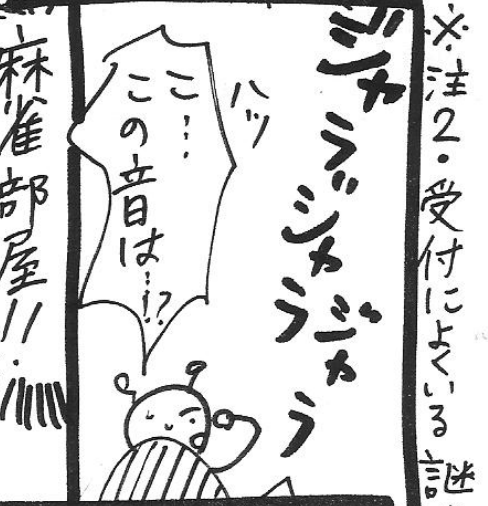 ※注2・受付によくいる謎
ジャラッジャラジャラ
ハッ
こ…
この音は…!?
麻雀部屋!!